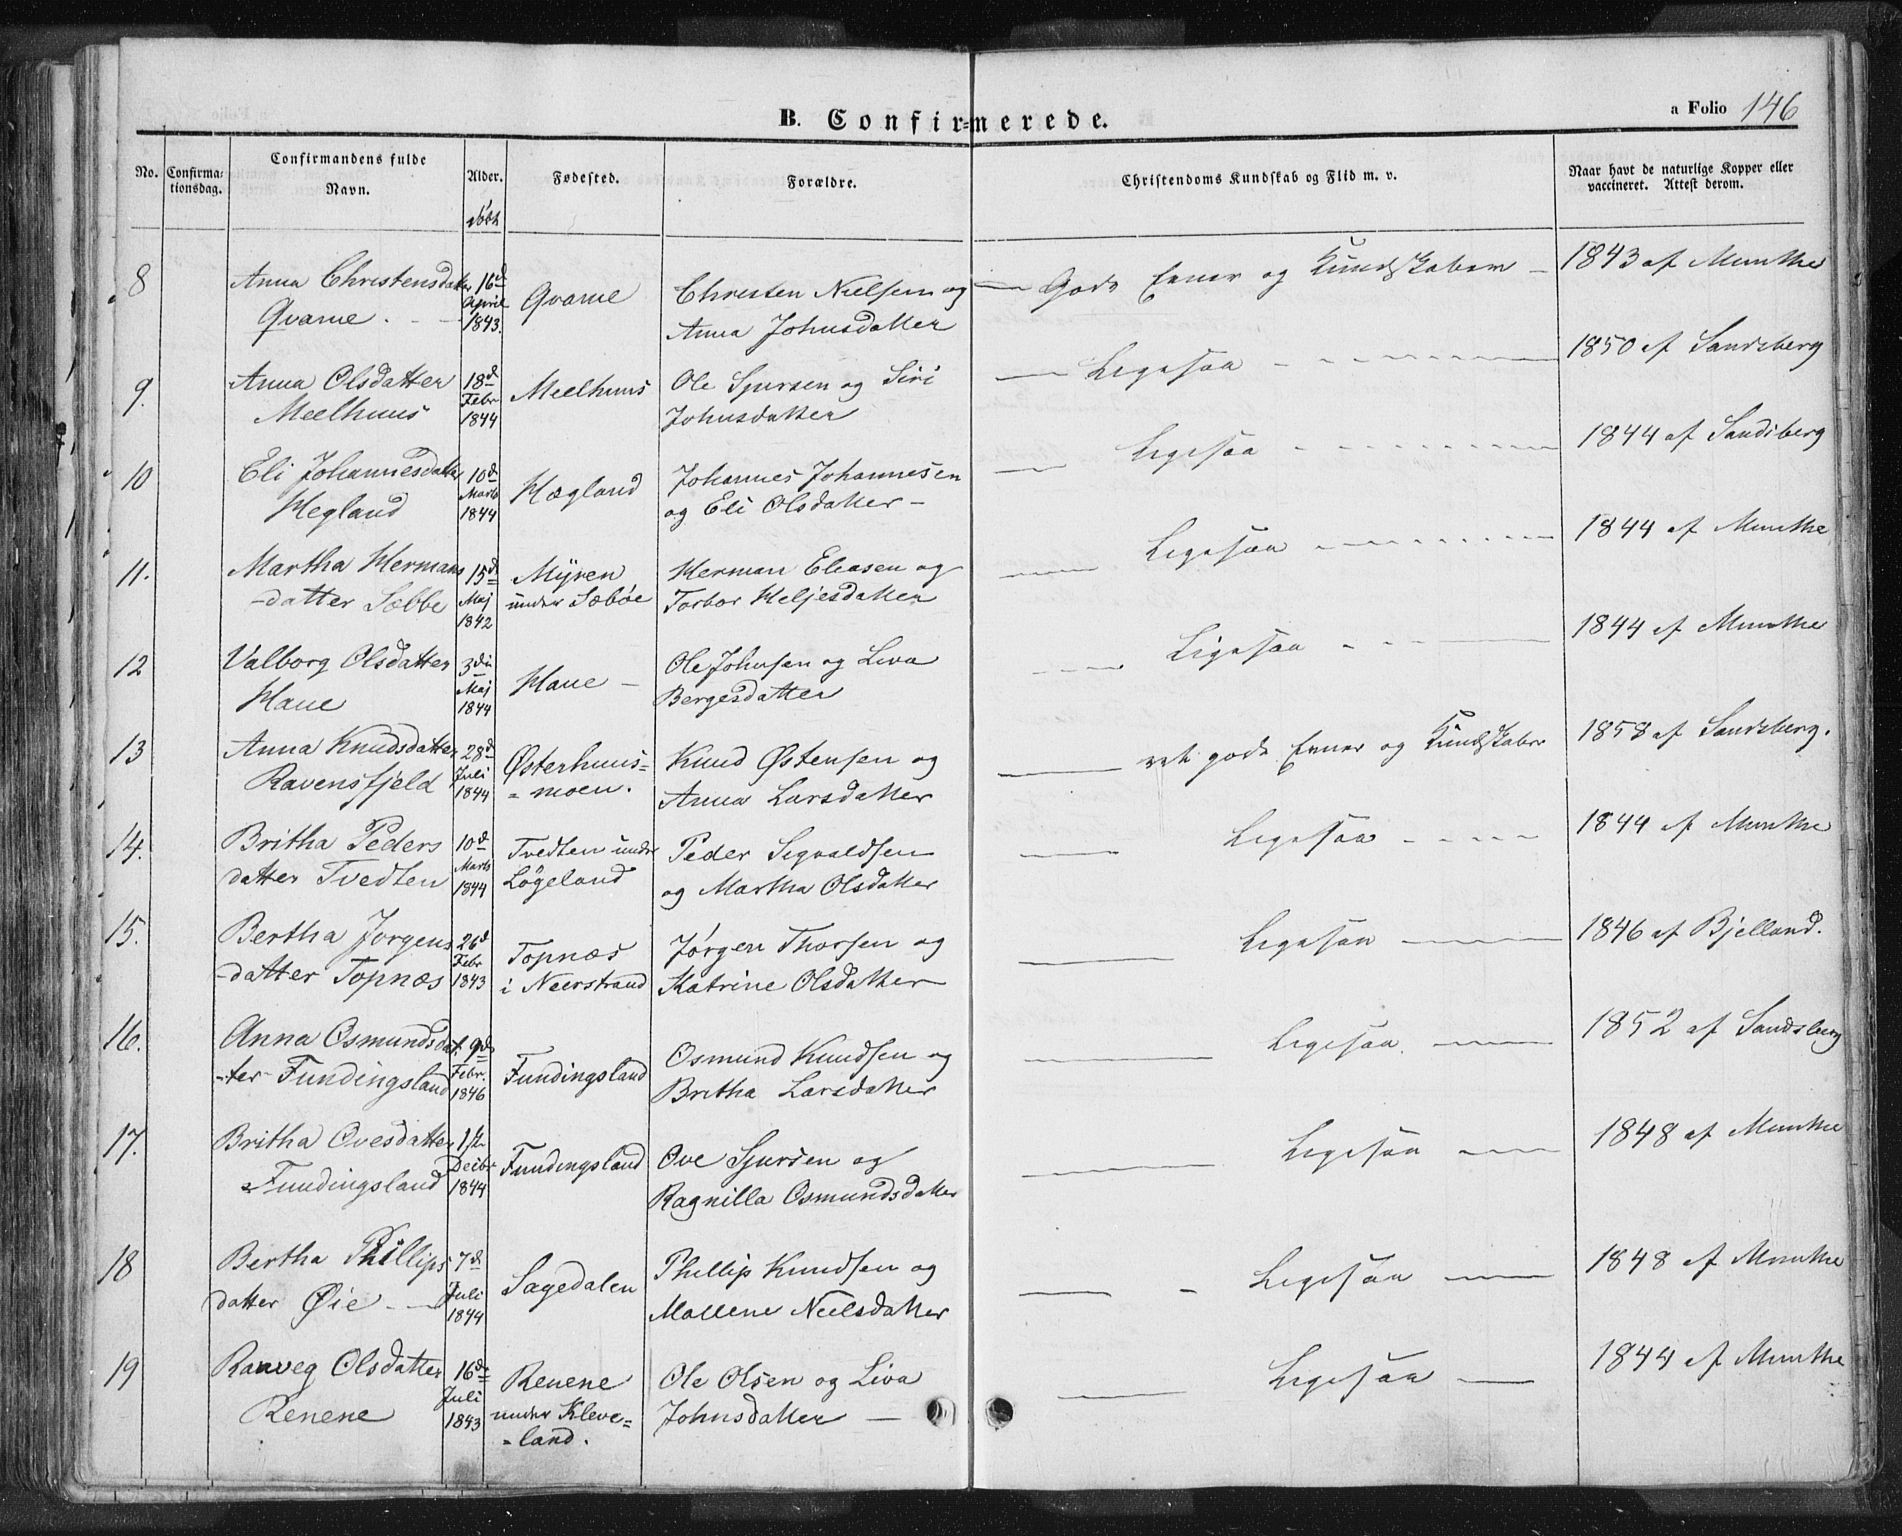 B. Confirmerede.
a Folio 146
No.
Confirma-
tionsdag.
Confirmandens fulde
Navn.
Alder.
Fødested.
Forældre.
Christendoms Kundskab og Flid m. v.
Naar havt de naturlige Kopper eller
vaccineret. Attest derom.
8 Anna Christensdatter 16d Qvame Christen Nielsen og Gode Evner og Kundskaber 1843 af Munthe
Qvame. April 1843. Anna Johnsdatter
9. Anna Olsdatter 18d Meelhuus Ole Sjursen og Siri Ligesaa 1850 af Sandsberg
Meelhuus Febr 1844 Johnsdatter
10 Eli Johannesdatter 10d Hægland Johannes Johannesen Ligesaa 1844 af Sandsberg
Hegland Marts 1844 og Eli Olsdatter
11. Martha Hermans 15d Myren Herman Eleasen og Ligesaa 1844 af Munthe
-datter Sæbbe Maj 1842 under Sæbøe Torbor Heljesdatter
12 Valborg Olsdatter 3die Haue Ole Johnsen og Liva Ligesaa 1844 af Munthe
Haue Maj 1844 Bergesdatter
13 Anna Knudsdatter 28d Østerhuus= Knud Østensen og gode Evner og Kundskaber 1858 af Sandsberg.
Ravensfjeld Juli 1844 =moen. Anna Larsdatter
14. Britha Peders 10d Tvedten under Peder Sigvaldsen Ligesaa 1844 af Munthe
datter Tvedten Marts 1844 Løgeland og Martha Olsdatter
15. Bertha Jørgens 26d Topnæs Jørgen Thorsen og Ligesaa 1846 af Bjelland.
-datter Topnæs Febr 1843 i Neerstrand Katrine Olsdatter
16. Anna Osmundsdat 9de Fundingsland Osmund Knudsen og Ligesaa 1852 af Sandsberg
-ter Fundingsland Febr. 1846 Britha Larsdatter
17. Britha Ovesdatter 1ste Fundingsland Ove Sjursen og Ligesaa 1848 af Munthe
Fundingsland Decbr 1844 Ragnilla Osmundsdatter
18 Bertha Phillips 7d Sagedalen Phillip Knudsen og Ligesaa 1848 af Munthe
datter Øie Juli 1844 Mallene Neelsdatter
19 Ranveg Olsdatter 16de Renene Ole Olsen og Liva Ligesaa 1844 af Munthe
Renene Juli 1843 under Kleve= Johnsdatter
=land.